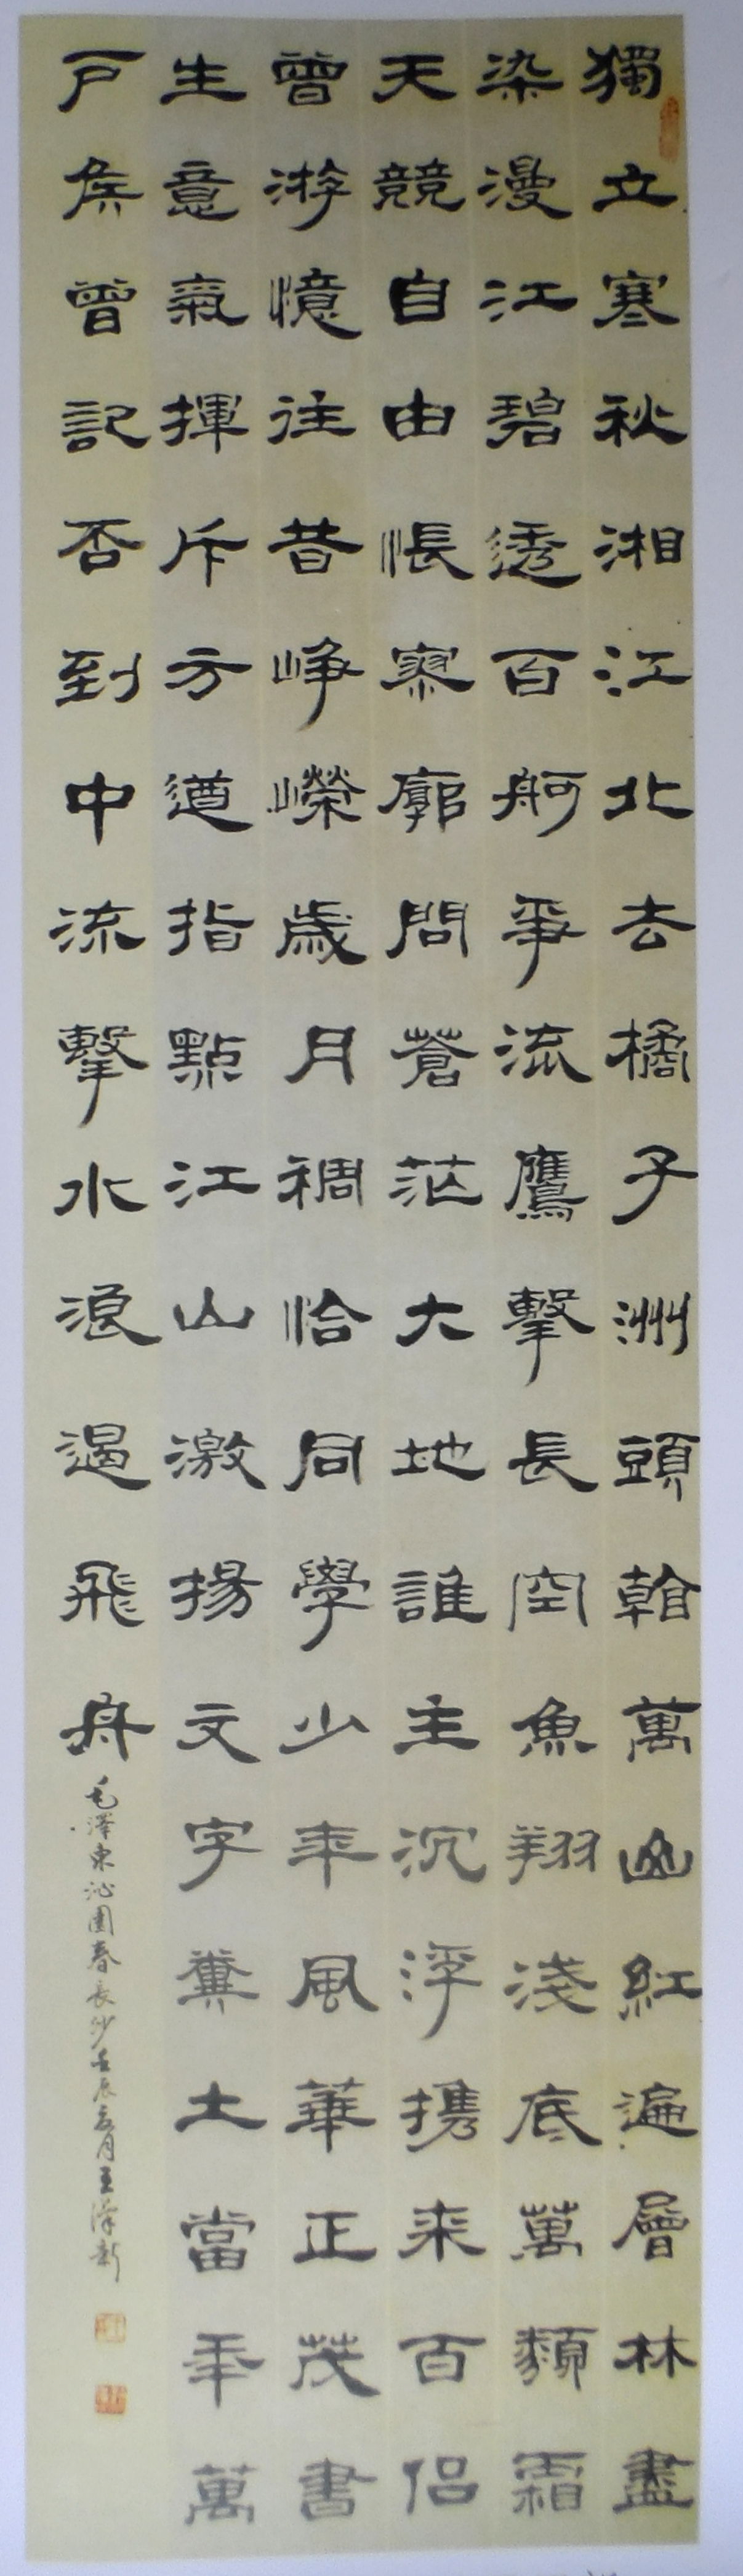 獨立寒秋湘江北去橘子洲頭看萬山紅遍層林盡
染漫江碧透百舸爭流鷹擊長空魚翔淺底萬類霜
天競自由悵寥廓問蒼茫大地誰主沉浮携来百侣
曾游憶往昔崢嶸歲月稠恰同學少年風華正茂書
生意氣揮斥方遒指點江山激揚文字糞土當年萬
户侯曾記否到中流擊水浪遏飛舟
毛澤東沁園春長沙壬辰